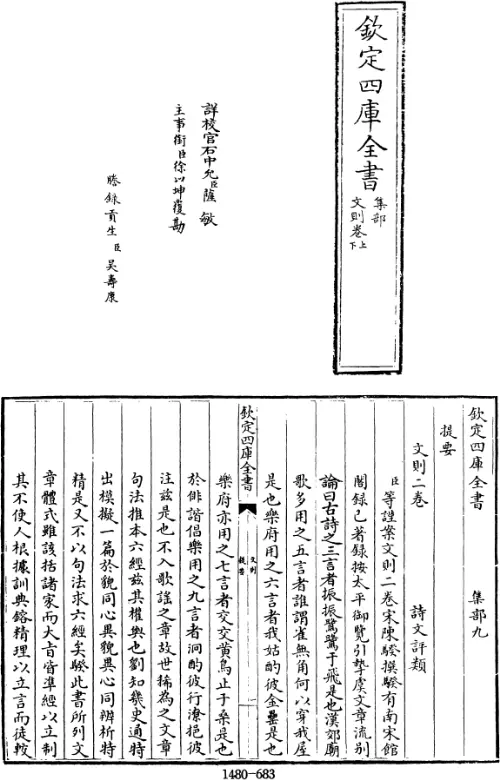 欽定四庫全書
集部
文則卷上下
詳校官右中允臣薩敏
主事銜臣徐以坤覆勘
謄錄貢生臣吳壽康
欽定四庫全書　集部九
提要
文則二卷　詩文評類
臣等謹案文則二卷宋陳騤撰騤有南宋館
閣録已著録按太平御覽引摯虞文章流别
論曰古詩之三言者振振鷺鷺于飛是也漢郊廟
歌多用之五言者誰謂雀無角何以穿我屋
是也樂府用之六言者我姑酌彼金罍是也
欽定四庫全書
文則
提要
樂府亦用之七言者交交黃鳥止于桑是也
於俳諧倡樂用之九言者泂酌彼行潦挹彼
注兹是也不入歌謡之章故世稀為之文章
句法推本六經兹其權輿也劉知幾史通特
出模擬一篇於貌同心異貌異心同辨析特
精是又不以句法求六經矣騤此書所列文
章體式雖該括諸家而大旨皆準經以立制
其不使人根據訓典鎔精理以立言而徒較
1480-683